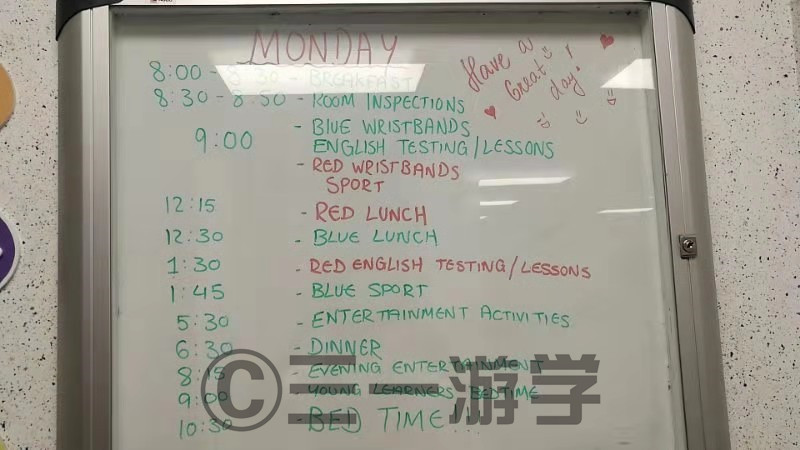 MONDAY
Have a
Great
day!
8:00 - 8:30 - BREAKFAST
8:30 - 8:50 - ROOM INSPECTIONS
9:00 - BLUE WRISTBANDS
ENGLISH TESTING/LESSONS
- RED WRISTBANDS
SPORT
12:15 - RED LUNCH
12:30 - BLUE LUNCH
1:30 - RED ENGLISH TESTING/LESSONS
1:45 - BLUE SPORT
5:30 - ENTERTAINMENT ACTIVITIES
6:30 - DINNER
8:15 - EVENING ENTERTAINMENT
9:00 - YOUNG LEARNERS BEDTIME
10:30 - BED TIME!!
©三 游学